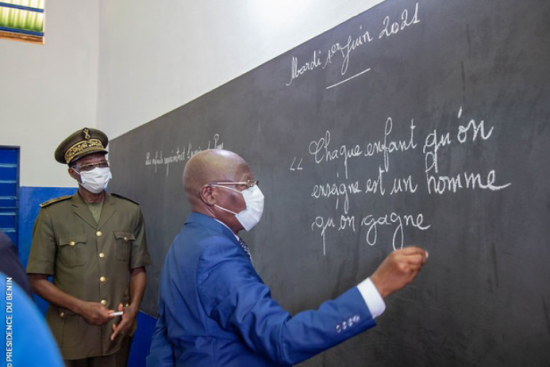 Mardi 1er juin 2021
« Chaque enfant qu'on
enseigne est un homme
qu'on gagne
© PRESIDENCE DU BENIN